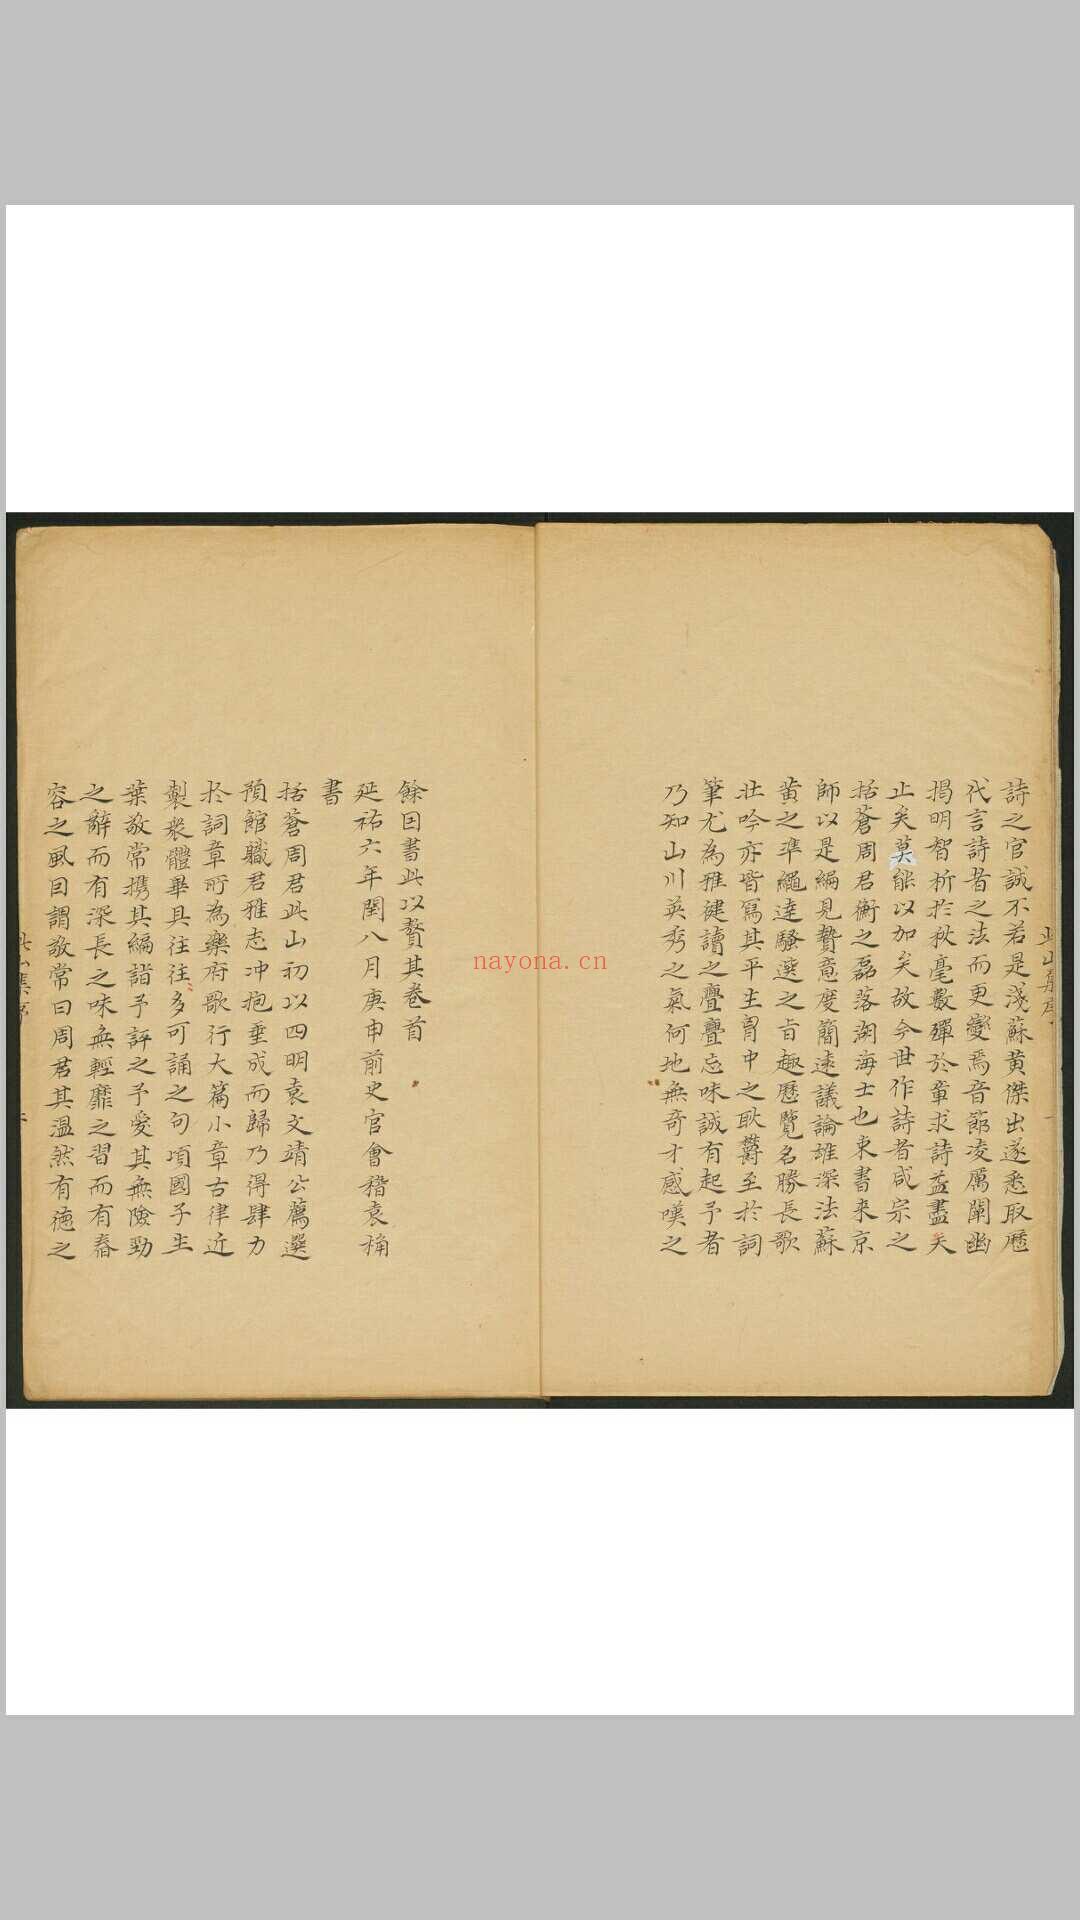 詩之官誠不若是淺蘇黃傑出遂悉取歷
代言詩者之法而更變焉音節凌厲闡幽
揭明智析於秋毫數殫於章求詩益盡矣
止矣莫能以加矣故今世作詩者咸宗之
括蒼周君衡之磊落湖海士也束書来京
師以是編見贄意度簡遠議論雄深法蘇
黄之準繩達騷選之旨趣歷覽名勝長歌
壯吟亦皆寫其平生胷中之耿欝至於詞
筆尤為雅健讀之亹亹忘味誠有起予者
乃知山川英秀之氣何地無奇才感嘆之
餘因書此以贅其卷首
延祐六年閏八月庚申前史官會稽袁桷
書
括蒼周君此山初以四明袁文靖公薦選
預館職君雅志冲抱垂成而歸乃得肆力
扵詞章所為樂府歌行大篇小章古律近
製衆體畢具往往多可誦之句項國子生
葉敬常携其編詣予評之予愛其無險勁
之辭而有深長之味無輕靡之習而有舂
容之風因謂敬常曰周君其温然有徳之
此山集序
nayona.cn